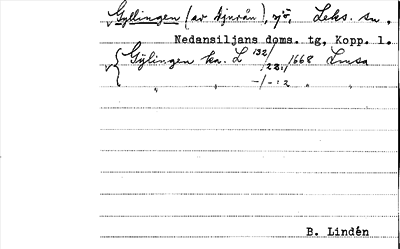 Gyllingen (av Njurån), sjö, Leks. sn,
Nedansiljans doms. tg, Kopp. l.
Gÿlingen ka. L 132/28:1/1668 Lmsa
" " -/-:2 " "
B. Lindén